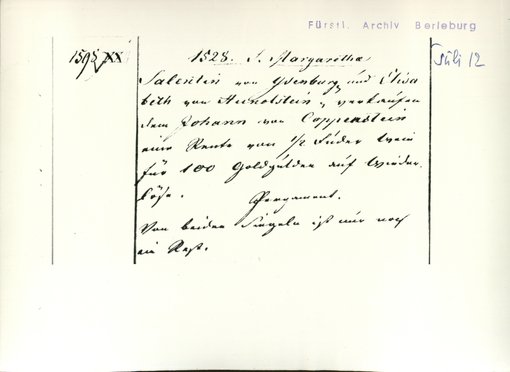 Fürstl. Archiv Berleburg
1598 XX
1528. S. Margaritha
[Juli 12
Salentin von Ysenburg und Elisa
beth von Hunolstein, verkaufen
dem Johann von Coppenstein
eine Rente von 1/2 Fuder Wein
für 100 Goldgulden auf Wieder-
löse.
Pergament.
Von beiden Siegeln ist nur noch
ein Rest.